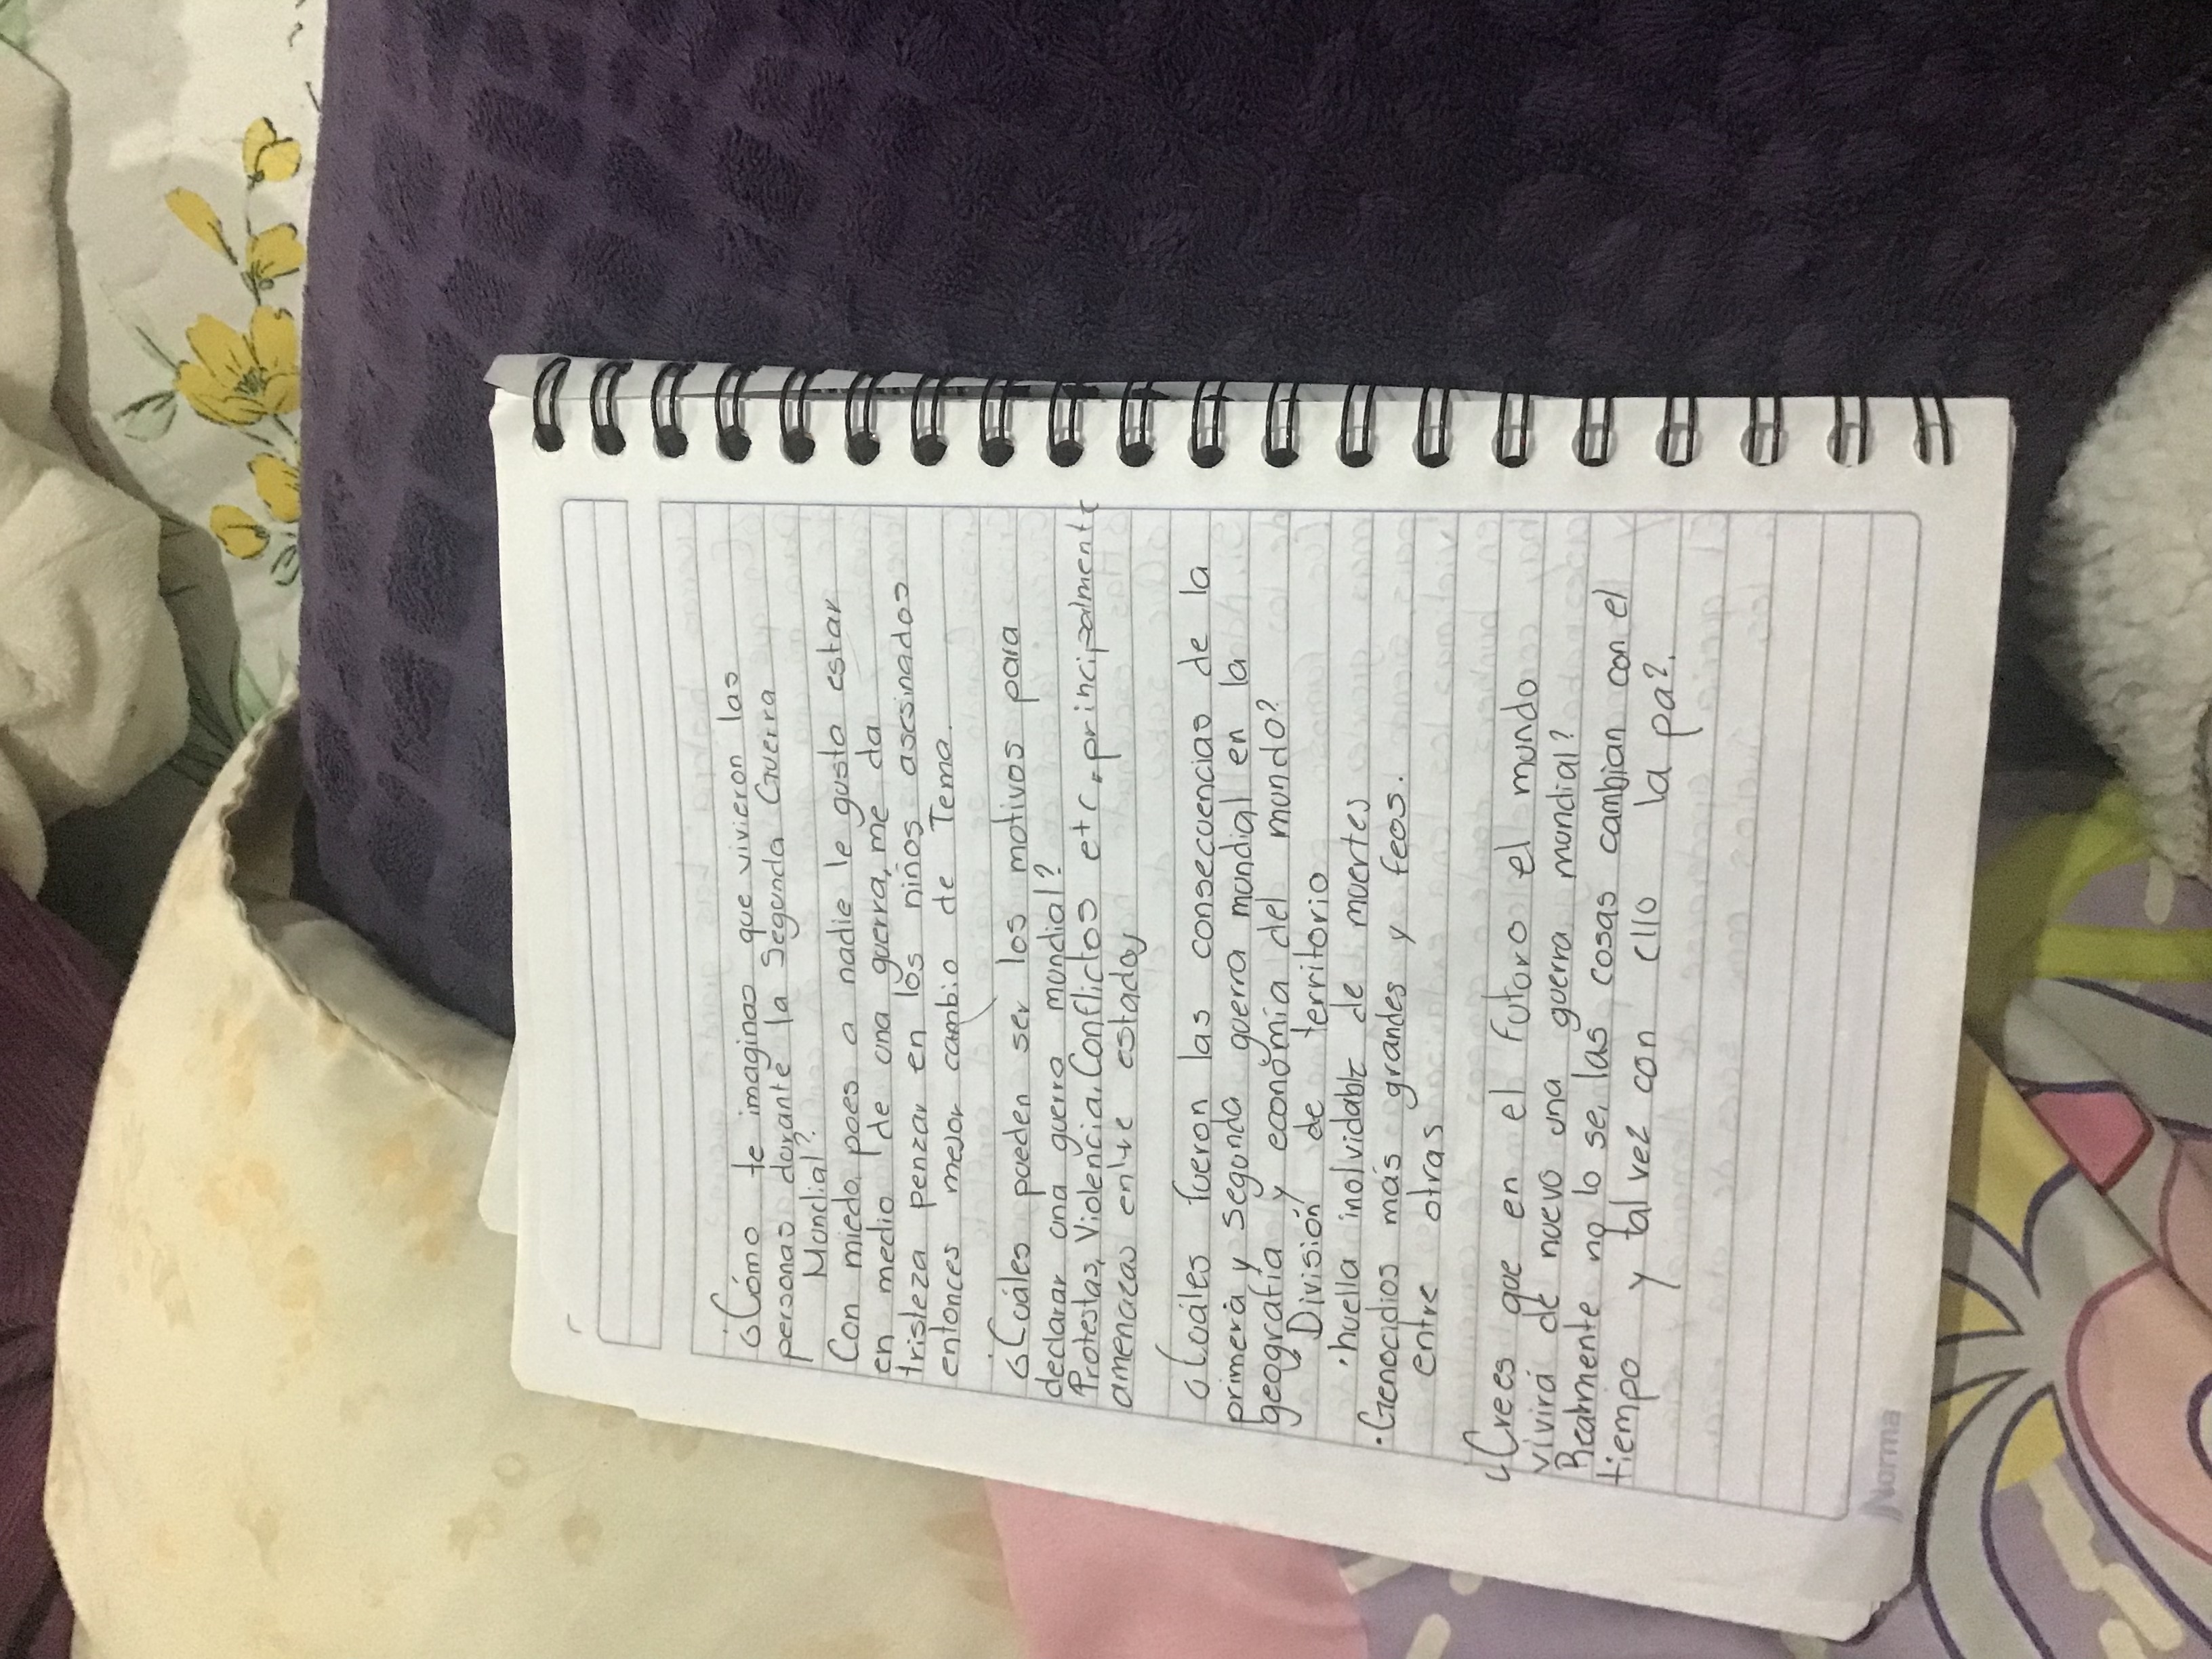 ¿Cómo te imaginas que vivieron las
personas durante la Segunda Guerra
Mundial?
Con miedo, pues a nadie le gusta estar
en medio de una guerra, me da
tristeza penzar en los niños asesinados
entonces mejor cambio de Tema.
¿Cuáles pueden ser los motivos para
declarar una guerra mundial?
Protestas, Violencia, Conflictos etc, principalmente
amenazas entre estados
¿Cuáles fueron las consecuencias de la
primera y segunda guerra mundial en la
geografía y económia del mundo?
División de territorio
·huella inolvidable de muertes
·Genocidios más grandes y feos.
entre otras
¿Crees que en el futuro el mundo
vivirá de nuevo una guerra mundial?
Realmente no lo se, las cosas cambian con el
tiempo y tal vez con ello la paz.
Norma